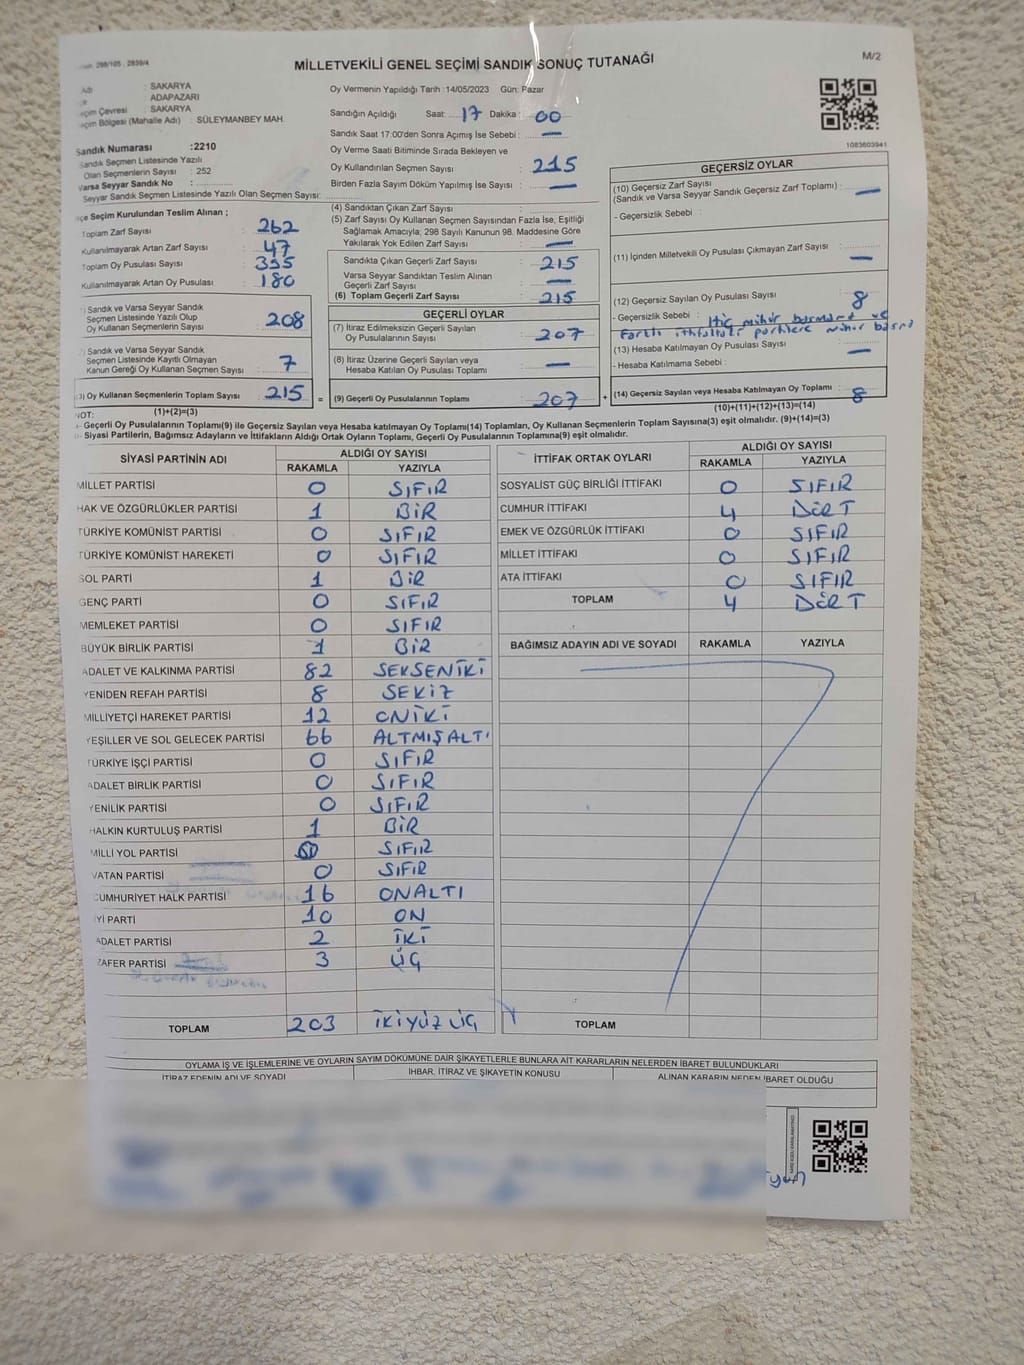 298/105 . 2839/4
MİLLETVEKİLİ GENEL SEÇİMİ SANDIK SONUÇ TUTANAĞI
M/2
Adı : SAKARYA
: ADAPAZARI
Seçim Çevresi : SAKARYA
Seçim Bölgesi (Mahalle Adı) : SÜLEYMANBEY MAH.
Sandık Numarası :2210
Sandık Seçmen Listesinde Yazılı
Olan Seçmenlerin Sayısı : 252
Varsa Seyyar Sandık No :
Seyyar Sandık Seçmen Listesinde Yazılı Olan Seçmen Sayısı:
Oy Vermenin Yapıldığı Tarih :14/05/2023 Gün: Pazar
Sandığın Açıldığı Saat: 17 Dakika : 00
Sandık Saat 17:00'den Sonra Açımış İse Sebebi : —
Oy Verme Saati Bitiminde Sırada Bekleyen ve
Oy Kullandırılan Seçmen Sayısı : 215
Birden Fazla Sayım Döküm Yapılmış İse Sayısı : —
1083603941
İlçe Seçim Kurulundan Teslim Alınan ;
Toplam Zarf Sayısı : 262
Kullanılmayarak Artan Zarf Sayısı : 47
Toplam Oy Pusulası Sayısı : 395
Kullanılmayarak Artan Oy Pusulası : 180
(1) Sandık ve Varsa Seyyar Sandık
Seçmen Listesinde Yazılı Olup
Oy Kullanan Seçmenlerin Sayısı : 208
(2) Sandık ve Varsa Seyyar Sandık
Seçmen Listesinde Kayıtlı Olmayan
Kanun Gereği Oy Kullanan Seçmen Sayısı : 7
(3) Oy Kullanan Seçmenlerin Toplam Sayısı : 215 =
(4) Sandıktan Çıkan Zarf Sayısı :
(5) Zarf Sayısı Oy Kullanan Seçmen Sayısından Fazla İse, Eşitliği
Sağlamak Amacıyla; 298 Sayılı Kanunun 98. Maddesine Göre
Yakılarak Yok Edilen Zarf Sayısı : —
Sandıkta Çıkan Geçerli Zarf Sayısı : 215
Varsa Seyyar Sandıktan Teslim Alınan
Geçerli Zarf Sayısı : —
(6) Toplam Geçerli Zarf Sayısı : 215
GEÇERLİ OYLAR
(7) İtiraz Edilmeksizin Geçerli Sayılan
Oy Pusulalarının Sayısı : 207
(8) İtiraz Üzerine Geçerli Sayılan veya
Hesaba Katılan Oy Pusulası Toplamı : —
(9) Geçerli Oy Pusulalarının Toplamı : 207 +
GEÇERSİZ OYLAR
(10) Geçersiz Zarf Sayısı
(Sandık ve Varsa Seyyar Sandık Geçersiz Zarf Toplamı) : —
- Geçersizlik Sebebi :
(11) İçinden Milletvekili Oy Pusulası Çıkmayan Zarf Sayısı : —
(12) Geçersiz Sayılan Oy Pusulası Sayısı : 8
- Geçersizlik Sebebi : Hiç mühür basmama ve
Farklı ittifaktaki partilere mühür basma
(13) Hesaba Katılmayan Oy Pusulası Sayısı : —
- Hesaba Katılmama Sebebi :
(14) Geçersiz Sayılan veya Hesaba Katılmayan Oy Toplamı : 8
NOT: (1)+(2)=(3) (10)+(11)+(12)+(13)=(14)
- Geçerli Oy Pusulalarının Toplamı(9) ile Geçersiz Sayılan veya Hesaba katılmayan Oy Toplamı(14) Toplamları, Oy Kullanan Seçmenlerin Toplam Sayısına(3) eşit olmalıdır. (9)+(14)=(3)
- Siyasi Partilerin, Bağımsız Adayların ve İttifakların Aldığı Ortak Oyların Toplamı, Geçerli Oy Pusulalarının Toplamına(9) eşit olmalıdır.
SİYASİ PARTİNİN ADI ALDIĞI OY SAYISI
RAKAMLA YAZIYLA
MİLLET PARTİSİ 0 SIFIR
HAK VE ÖZGÜRLÜKLER PARTİSİ 1 BİR
TÜRKİYE KOMÜNİST PARTİSİ 0 SIFIR
TÜRKİYE KOMÜNİST HAREKETİ 0 SIFIR
SOL PARTİ 1 BİR
GENÇ PARTİ 0 SIFIR
MEMLEKET PARTİSİ 0 SIFIR
BÜYÜK BİRLİK PARTİSİ 1 BİR
ADALET VE KALKINMA PARTİSİ 82 SEKSENİKİ
YENİDEN REFAH PARTİSİ 8 SEKİZ
MİLLİYETÇİ HAREKET PARTİSİ 12 ONİKİ
YEŞİLLER VE SOL GELECEK PARTİSİ 66 ALTMIŞALTI
TÜRKİYE İŞÇİ PARTİSİ 0 SIFIR
ADALET BİRLİK PARTİSİ 0 SIFIR
YENİLİK PARTİSİ 0 SIFIR
HALKIN KURTULUŞ PARTİSİ 1 BİR
MİLLİ YOL PARTİSİ 0 SIFIR
VATAN PARTİSİ 0 SIFIR
CUMHURİYET HALK PARTİSİ 16 ONALTI
İYİ PARTİ 10 ON
ADALET PARTİSİ 2 İKİ
ZAFER PARTİSİ 3 ÜÇ
TOPLAM 203 İKİYÜZ ÜÇ
İTTİFAK ORTAK OYLARI ALDIĞI OY SAYISI
RAKAMLA YAZIYLA
SOSYALİST GÜÇ BİRLİĞİ İTTİFAKI 0 SIFIR
CUMHUR İTTİFAKI 4 DÖRT
EMEK VE ÖZGÜRLÜK İTTİFAKI 0 SIFIR
MİLLET İTTİFAKI 0 SIFIR
ATA İTTİFAKI 0 SIFIR
TOPLAM 4 DÖRT
BAĞIMSIZ ADAYIN ADI VE SOYADI RAKAMLA YAZIYLA
TOPLAM
OYLAMA İŞ VE İŞLEMLERİNE VE OYLARIN SAYIM DÖKÜMÜNE DAİR ŞİKAYETLERLE BUNLARA AİT KARARLARIN NELERDEN İBARET BULUNDUKLARI
İTİRAZ EDENİN ADI VE SOYADI İHBAR, İTİRAZ VE ŞİKAYETİN KONUSU ALINAN KARARIN NEDEN İBARET OLDUĞU